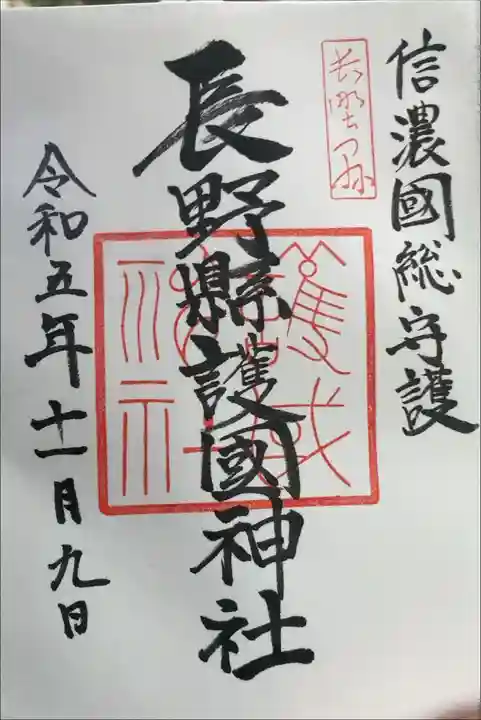 信濃國総守護
長野縣
長野縣護國神社
令和五年十一月九日